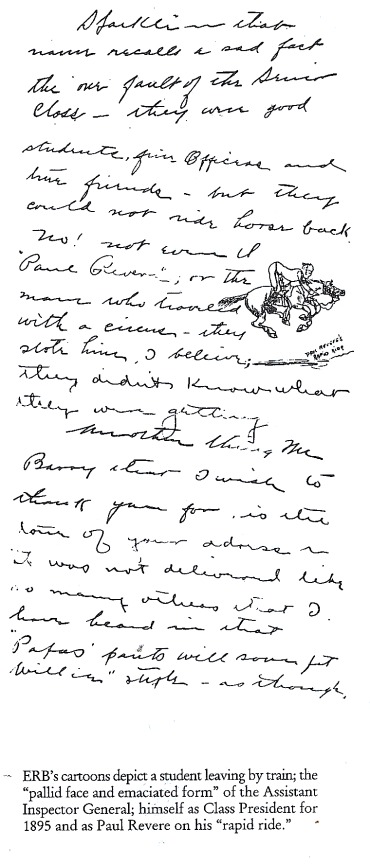 that
name recalls a sad fact
the one fault of the Senior
Class – they were good
students, fine Officers and
true friends – but they
could not ride horse back.
No! not even
"Paul Revere", or the
man who traveled
with a circus – they
stole him, I believe,
they didn't know what
they were getting
PAUL REVERE'S
RAPID RIDE
Another thing Mr
Barry that I wish to
thank you for, is the
tone of your address
it was not delivered like
so many others that I
have heard in that
"Papas' pants will soon fit
Willie" style – as though,
ERB's cartoons depict a student leaving by train; the
"pallid face and emaciated form" of the Assistant
Inspector General; himself as Class President for
1895 and as Paul Revere on his "rapid ride."